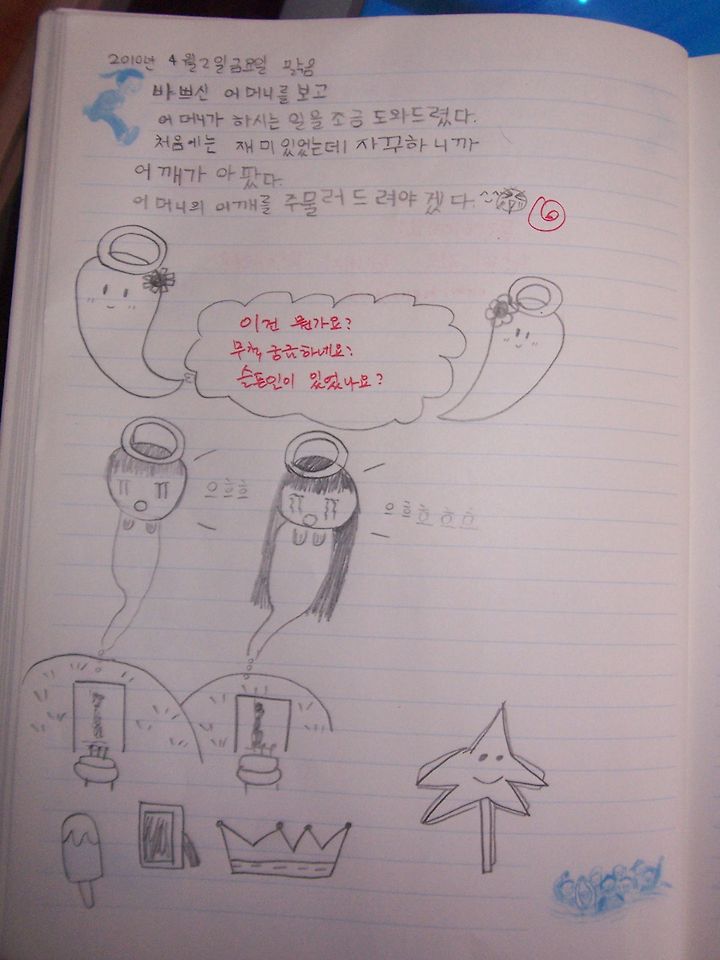 2010년 4월 2일 금요일 맑음
바쁘신 어머니를 보고
어머니가 하시는 일을 조금 도와드렸다.
처음에는 재미있었는데 자꾸하니까
어깨가 아팠다.
어머니의 어깨를 주물러 드려야겠다. ^^
6
이건 뭔가요?
무척 궁금하네요?
슬픈일이 있었나요?
으흐흐
으흐흐흐흐